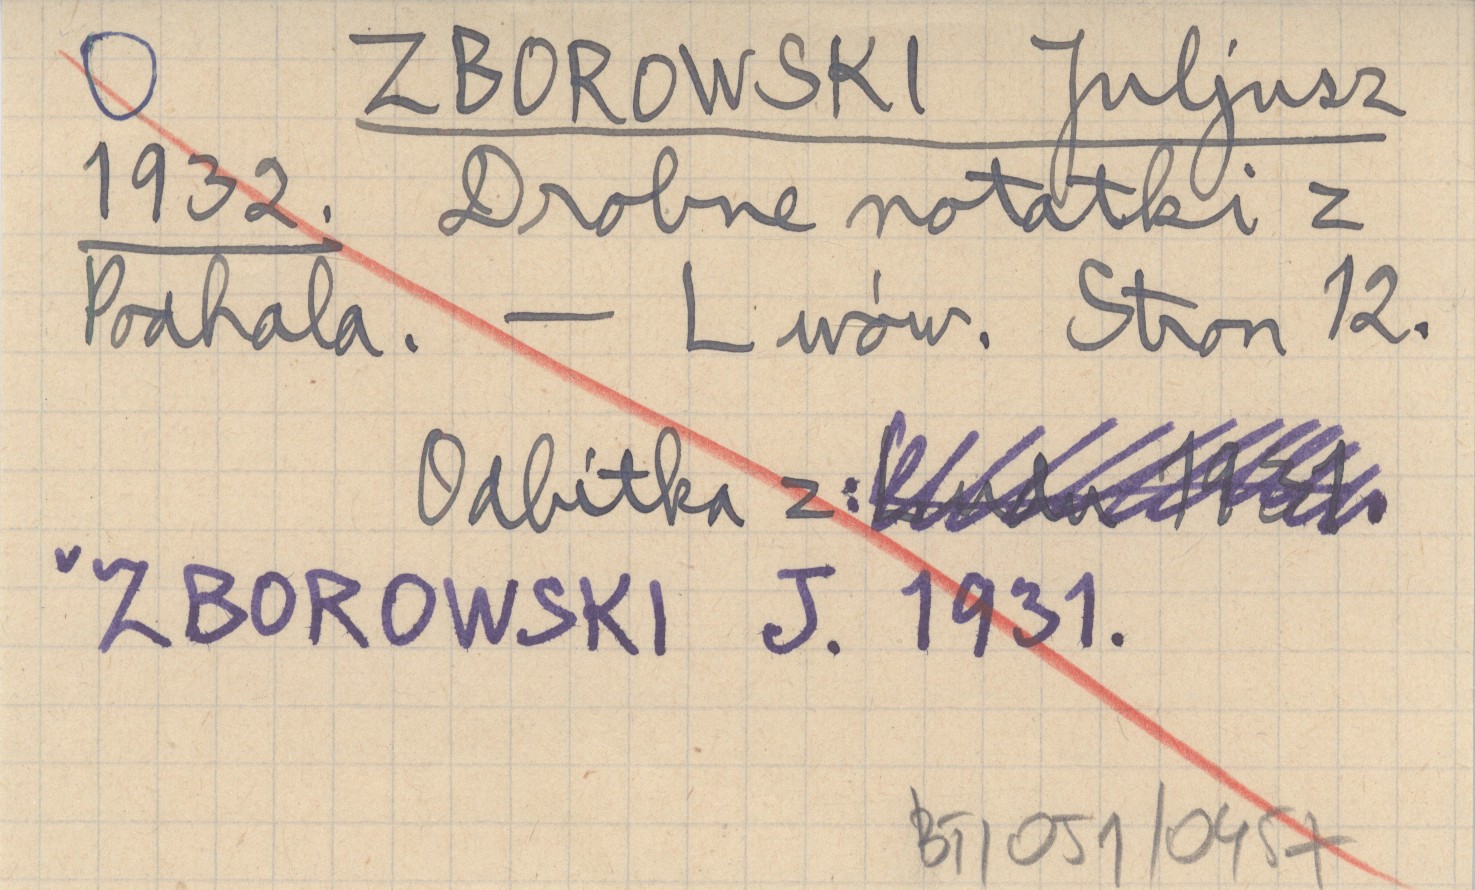 O ZBOROWSKI Juljusz
1932. Drobne notatki z
Podhala. — Lwów. Stron 12.
Odbitka z: Ludu 1931.
ZBOROWSKI J. 1931.
BT/051/0457